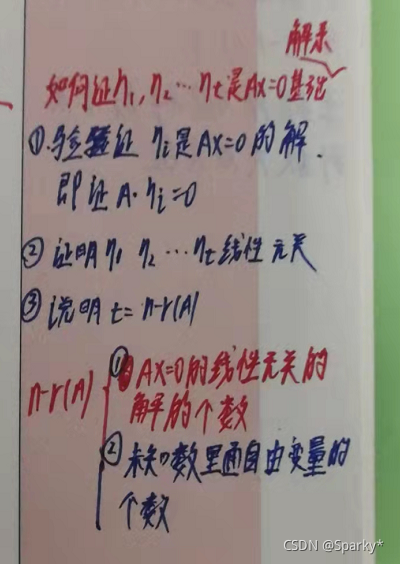 解系
如何证η₁,η₂…ηt是Ax=0基础
①验证 ηi是AX=0的解.
即证A·ηi=0
②证明η₁ η₂…ηt线性无关
③说明t=n-r(A)
n-r(A)
①AX=0的线性无关的
解的个数
②未知数里面自由变量的
个数
CSDN @Sparky*